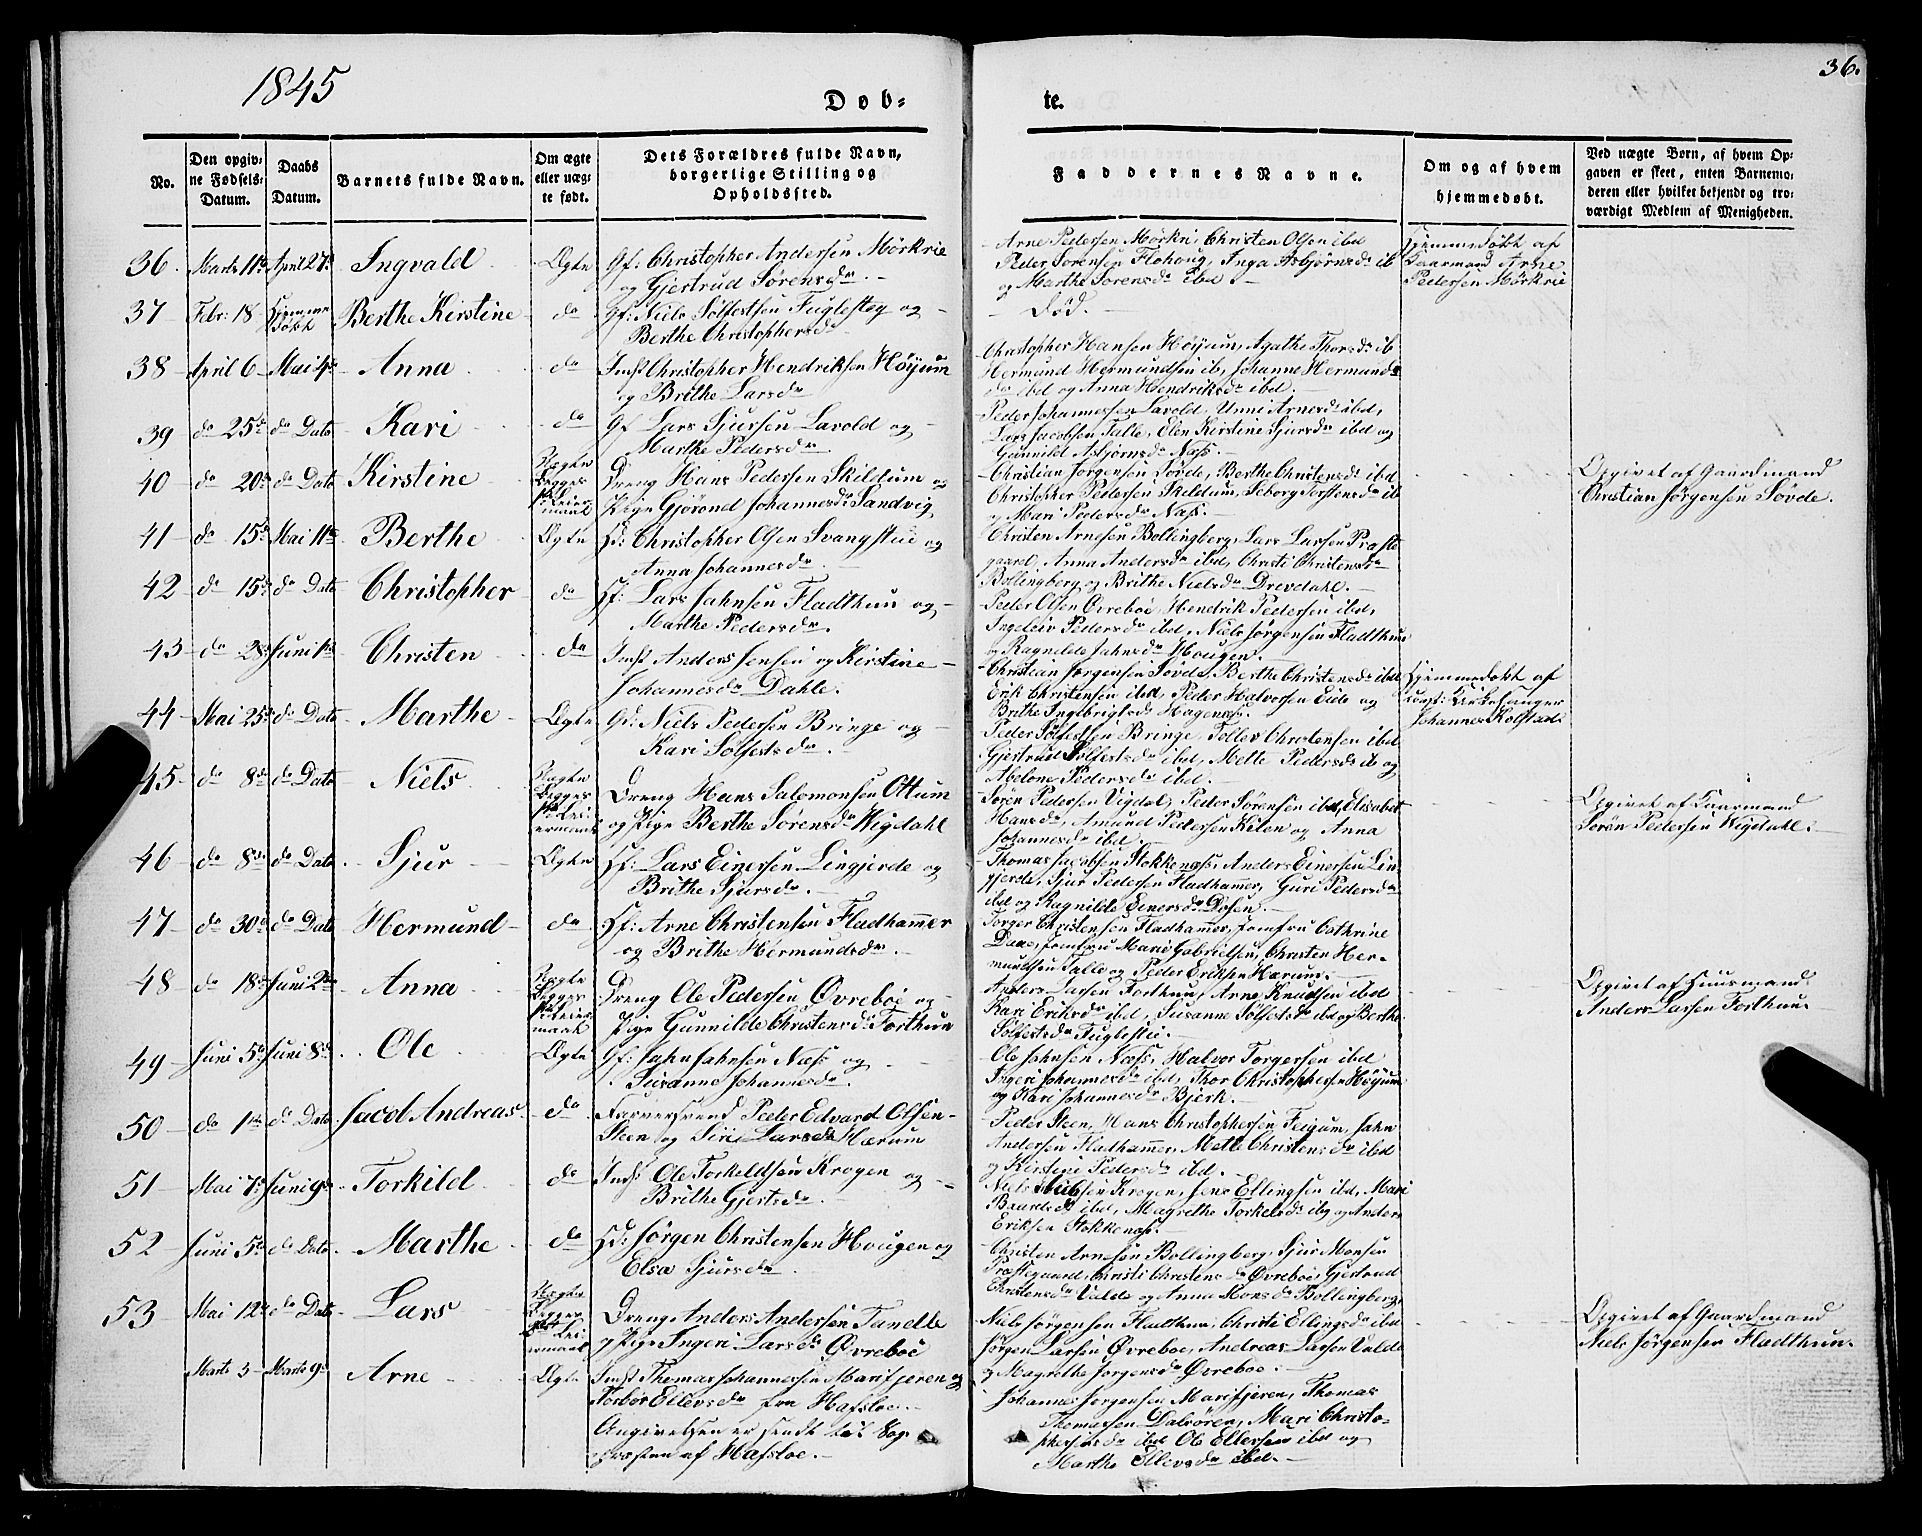 1845
Døb-
te.
36.
No.
Den opgiv-
ne Fødsels-
Datum.
Daabs
Datum.
Barnets fulde Navn.
Om ægte
eller uæg-
te født.
Dets Forældres fulde Navn,
borgerlige Stilling og
Opholdssted.
Faddernes Navne.
Om og af hvem
hjemmedøbt.
Ved uægte Børn, af hvem Op-
gaven er skeet, enten Barnemo-
deren eller hvilket bekjendt og tro-
værdigt Medlem af Menigheden.
36. Marts 11te April 27de Ingvald Ægte Gf: Christopher Andersen Mørkrie
og Gjertrud Sørensdr
Arne Pedersen Mørkri, Christen Olsen ibd
Peder Sørensen Flohoug, Inga Asbjørnsdr ib
og Marthe Sørensdr ibd.
Hjemmedøbt af
Gaarmand Arne
Pedersen Mørkrie
37 Febr: 18 Hjemme
døbt Berthe Kirstine do Gf: Niels Sølfestsen Fuglesteg og
Berthe Christophersdr
Død.
38 April 6 Mai 4de Anna do Inds Christopher Hendriksen Høyum
og Brithe Larsdr
Christopher Hansen Høyum, Agathe Thorsdr ib
Hermund Hermundsen ib, Johanne Hermunds
dr ibd og Anna Hendriksdr ibd.
39 do 25de do Dato Kari do Gf Lars Sjursen Lavold og
Marthe Pedersdr
Peder Johannessen Lavold, Unni Arnesdr ibd,
Lars Jacobsen Talle, Elen Kirstine Sjursdr ibd og
Gunnild Asbjørnsdr Næss.
40 do 20de do Dato Kirstine Uægte
Begges
Leier
maal Dreng Hans Pedersen Skildum og
Pige Gjørond Johannesdr Sandvig
Christian Jørgensen Søvde, Berthe Christensdr ibd
Christopher Pedersen Skildum, Seborg Torstensdr ib
og Mari Pedersdr Næss.
Opgivet af Gaardmand
Christian Jørgensen Søvde.
41 do 15de Mai 11te Berthe Ægte Christopher Olsen Svangstue og
Anna Johannesdr
Christen Arnesen Bollingberg, Lars Larsen Præste
gaard, Anna Andersdr ibd, Christi Christensdr
Bollingberg og Brithe Nielsdr Drevdahl.
42 do 15de do Dato Christopher do Hf: Lars Jahnsen Fladthun og
Marthe Pedersdr.
Peder Olsen Øvreboe, Hendrik Pedersen ibd,
Ingeleiv Pedersdr ibd, Niels Jørgensen Fladthun
og Ragnilde Jahnsdr Hougen.
43 do 28de Juni 1ste Christen do Inds Anders Jensen og Kirstine
Johannesdr Dahle.
Christian Jørgensen Søvde, Berthe Christensdr ibd
Erik Christensen ibd, Peder Halvorsen Eide og
Brithe Ingebrigtsdr Hagenæss.
Hjemmedøbt af
Kirkesanger
Johannes Kolstad
44 Mai 25de do Dato Marthe Ægte Gf: Niels Pedersen Bringe og
Kari Sølfestsdr
Peder Sølfestsen Bringe, Tollev Christensen ibd
Gjertrud Sølfestsdr ibd, Mette Pedersdr ib og
Abelone Pedersdr ibd.
45 do 8de do Dato Niels Uægte
Begges
Lei-
ermaal Dreng Hans Salomonsen Ottum
og Pige Berthe Sørensdr Wigdahl
Søren Pedersen Vigdal, Peder Sørensen ibd, Elisabet
Hansdr, Amund Pedersen Kilen og Anna
Johannesdr ibd
Opgivet af Gaarmand
Søren Pedersen Wigdahl.
46 do 8de do Dato Sjur Ægte Hf: Lars Einersen Lingjerde og
Brithe Sjursdr.
Thomas Jacobsen Stokkenæss, Anders Einersen Lin-
gjerde, Sjur Pedersen Fladhamer, Guri Pedersdr
ibd og Ragnilde Einersdr Døsen.
47 do 30de do Dato Hermund do Hf: Arne Christensen Fladhamer
og Brithe Hermundsdr.
Torger Christensen Fladhamer, Jomfru Cathrine
Daae, Jomfru Marie Gabrielsen, Christen Her-
mundsen Talle og Peder Eriksen Hærum.
48 do 18de Juni 2den Anna Uægte
Begges
Leier
maal Dreng Ole Pedersen Øvreboe og
Pige Gunnilde Christensdr Forthun
Anders Larsen Forthun, Arne Knudsen ibd
Kari Eriksdr ibd, Susanne Sølfestsdr ibd og Berthe
Sølfestsdr Fuglestie.
Opgivet af Huusmand
Anders Larsen Forthun
49 Juni 5te Juni 8de Ole Ægte Gf: Jahn Jahnsen Næss og
Susanne Johannesdr.
Ole Jahnsen Næss, Halvor Torgersen ibd
Ingeri Johannesdr ibd, Thor Christophersen Høyum
og Kari Johannesdr Bjerk.
50 do 1ste do Dato Jacob Andreas do Farversvend Peder Edvard Olsen
Steen og Siri Larsdr Hærum
Peder Steen, Hans Christophersen Feigum, Jahn
Andersen Fladhamer, Mette Christensdr ibd
og Kirstine Pedersdr ibd.
51 Mai 7de Juni 9de Torkild do Inds Ole Torkeldsen Krogen og
Brithe Gjertsdr.
Niels Nielsen Krogen, Jens Ellingsen ibd, Mari
Baardsdr ibd, Magrethe Torkelsdr ibg og Anders
Eriksen Stokkenæss.
52 Juni 5te do Dato Marthe do Jørgen Christensen Hougen og
Elsa Sjursdr
Christen Arnesen Bollingberg, Sjur Monsen
Præstegaard, Christi Christensdr Øvreboe, Gjertrud
Christensdr Valde og Anna Monsdr Bollingberg.
53 Mai 12te do Dato Lars Uægte
Begges
Lei
ermaal Dreng Anders Andersen Tandle
og Pige Ingeri Larsdr Øvreboe
Niels Jørgensen Fladthun, Christi Ellingsdr ibd
Jørgen Larsen Øvreboe, Andreas Larsen Valde
og Magrethe Jørgensdr Øvreboe.
Opgivet af Gaardmand
Niels Jørgensen Fladthun.
Marts 3 Marts 9de Arne Ægte Inds Thomas Johannesen Marifjæren og
Torbor Ellevsdr fra Hafsloe.
Angivelsen er sendt til Sog-
præsten af Hafsloe.
Johannes Jørgensen Marifjæren, Thomas
Thomassen Dalsøren, Mari Christo-
phersdr ibd Ole Ellefsen ibd og
Marthe Ellevsdr ibd.